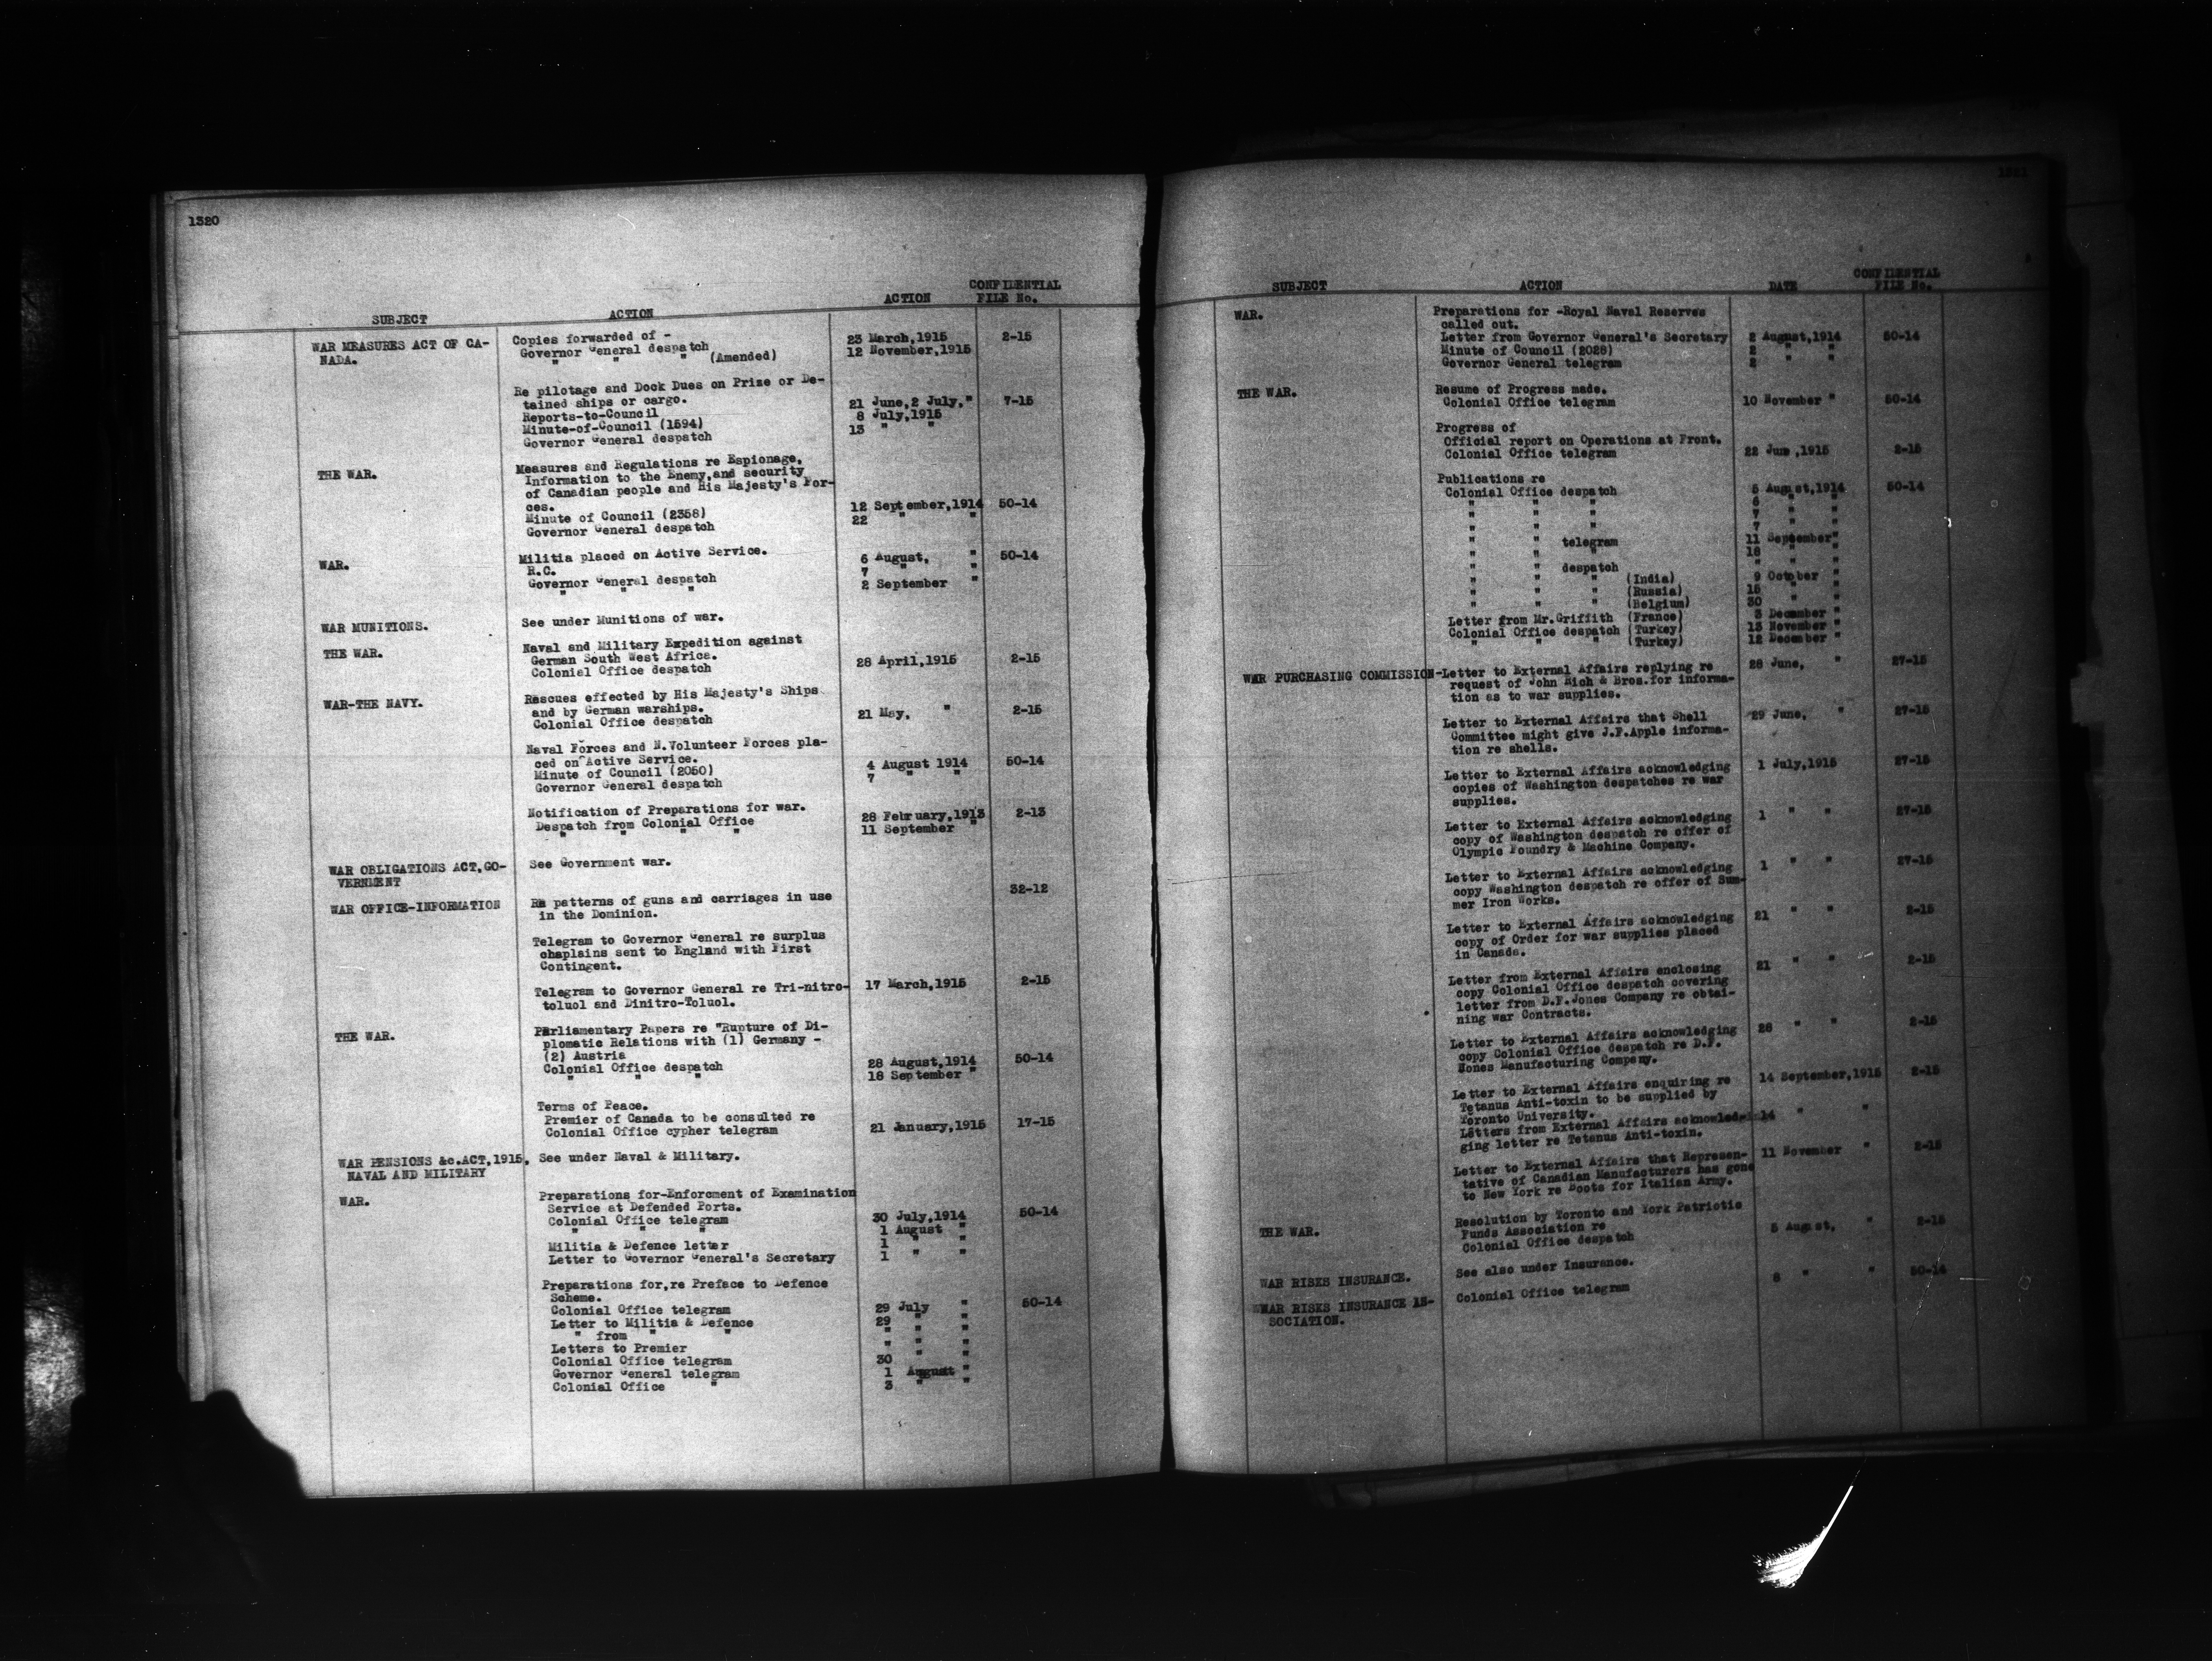 1320
SUBJECT ACTION ACTION CONFIDENTIAL FILE No.
WAR MEASURES ACT OF CA- Copies forwarded of -
NADA. Governor General despatch 23 March,1915 2-15
" " " (Amended) 12 November,1915
Re pilotage and Dock Dues on Prize or De-
tained ships or cargo.
Reports-to-Council 21 June,2 July," 7-15
Minute-of-Council (1594) 8 July,1915
Governor General despatch 13 " "
THE WAR. Measures and Regulations re Espionage,
Information to the Enemy,and security
of Canadian people and His Majesty's For-
ces.
Minute of Council (2358) 12 September,1914 50-14
Governor General despatch 22 " "
WAR. Militia placed on Active Service.
R.C. 6 August, " 50-14
Governor General despatch 7 " "
" " " 2 September "
WAR MUNITIONS. See under Munitions of war.
THE WAR. Naval and Military Expedition against
German South West Africa.
Colonial Office despatch 28 April,1915 2-15
WAR-THE NAVY. Rescues effected by His Majesty's Ships
and by German warships.
Colonial Office despatch 21 May, " 2-15
Naval Forces and N.Volunteer Forces pla-
ced on Active Service.
Minute of Council (2050) 4 August 1914 50-14
Governor General despatch 7 " "
Notification of Preparations for war.
Despatch from Colonial Office 28 February,1913 2-13
" " " " 11 September "
WAR OBLIGATIONS ACT,GO- See Government war.
VERNMENT
WAR OFFICE-INFORMATION Re patterns of guns and carriages in use 32-12
in the Dominion.
Telegram to Governor General re surplus
chaplains sent to England with First
Contingent.
Telegram to Governor General re Tri-nitro- 17 March,1915 2-15
toluol and Dinitro-Toluol.
THE WAR. Parliamentary Papers re "Rupture of Di-
plomatic Relations with (1) Germany -
(2) Austria
Colonial Office despatch 28 August,1914 50-14
" " " 18 September "
Terms of Peace.
Premier of Canada to be consulted re
Colonial Office cypher telegram 21 January,1915 17-15
WAR PENSIONS &c.ACT,1915, See under Naval & Military.
NAVAL AND MILITARY
WAR. Preparations for-Enforcment of Examination
Service at Defended Ports.
Colonial Office telegram 30 July,1914 50-14
" " " 1 August "
Militia & Defence letter 1 " "
Letter to Governor General's Secretary 1 " "
Preparations for,re Preface to Defence
Scheme.
Colonial Office telegram 29 July " 50-14
Letter to Militia & Defence 29 " "
" from " " " " "
Letters to Premier " " "
Colonial Office telegram 30 " "
Governor General telegram 1 August "
Colonial Office " 3 " "
1321
SUBJECT ACTION DATE CONFIDENTIAL FILE No.
WAR. Preparations for -Royal Naval Reserves
called out.
Letter from Governor General's Secretary 2 August,1914 50-14
Minute of Council (2028) 2 " "
Governor General telegram 2 " "
THE WAR. Resume of Progress made.
Colonial Office telegram 10 November " 50-14
Progress of
Official report on Operations at Front.
Colonial Office telegram 22 June,1915 2-15
Publications re
Colonial Office despatch 5 August,1914 50-14
" " " 6 " "
" " " 7 " "
" " " 7 " "
" " telegram 11 September"
" " " 18 " "
" " despatch " " "
" " " (India) 9 October "
" " " (Russia) 15 " "
" " " (Belgium) 30 " "
Letter from Mr.Griffith (France) 3 December "
Colonial Office despatch (Turkey) 13 November "
" " " (Turkey) 12 December "
WAR PURCHASING COMMISSION-Letter to External Affairs replying re 28 June, " 27-15
request of John Rich & Bros.for informa-
tion as to war supplies.
Letter to External Affairs that Shell 29 June, " 27-15
Committee might give J.F.Apple informa-
tion re shells.
Letter to External Affairs acknowledging 1 July,1915 27-15
copies of Washington despatches re war
supplies.
Letter to External Affairs acknowledging 1 " " 27-15
copy of Washington despatch re offer of
Olympic Foundry & Machine Company.
Letter to External Affairs acknowledging 1 " " 27-15
copy Washington despatch re offer of Sum-
mer Iron Works.
Letter to External Affairs acknowledging 21 " " 2-15
copy of Order for war supplies placed
in Canada.
Letter from External Affairs enclosing 21 " " 2-15
copy Colonial Office despatch covering
letter from D.F.Jones Company re obtai-
ning war Contracts.
Letter to External Affairs acknowledging 28 " " 2-15
copy Colonial Office despatch re D.F.
Jones Manufacturing Company.
Letter to External Affairs enquiring re 14 September,1915 2-15
Tetanus Anti-toxin to be supplied by
Toronto University.
Letters from External Affairs acknowled- 14 " "
ging letter re Tetanus Anti-toxin.
Letter to External Affairs that Represen- 11 November " 2-15
tative of Canadian Manufacturers has gone
to New York re Boots for Italian Army.
THE WAR. Resolution by Toronto and York Patriotic
Funds Association re
Colonial Office despatch 5 August, " 2-15
WAR RISKS INSURANCE. See also under Insurance.
WAR RISKS INSURANCE AS- Colonial Office telegram 8 " " 50-14
SOCIATION.